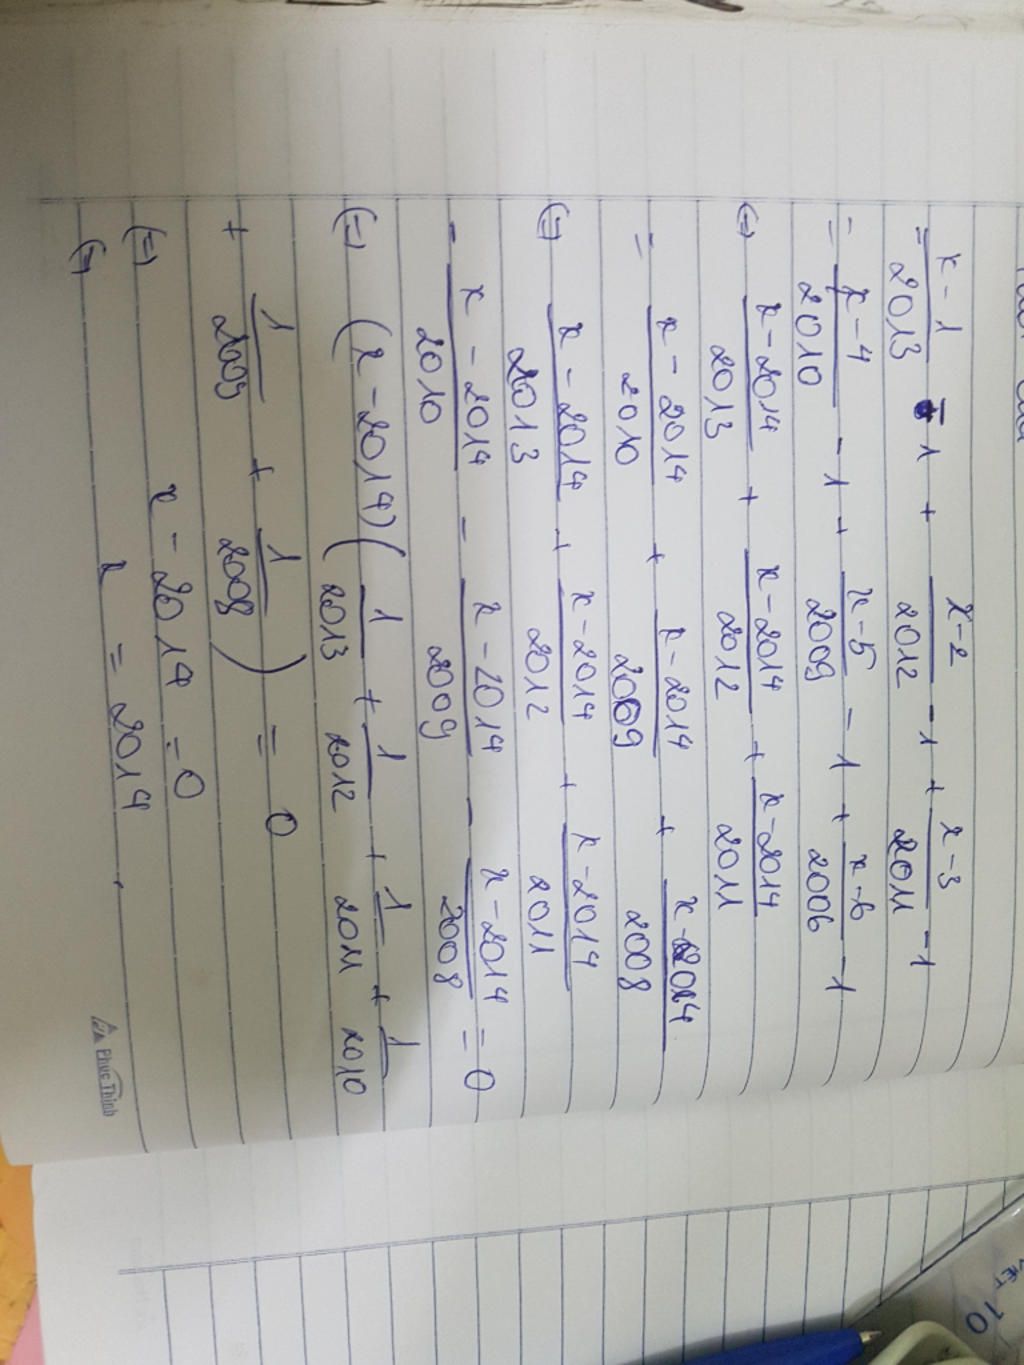 = x-1/2013 - 1 + x-2/2012 - 1 + x-3/2011 - 1
= x-4/2010 - 1 + x-5/2009 - 1 + x-6/2006 - 1
(=) x-2014/2013 + x-2014/2012 + x-2014/2011
= x-2014/2010 + x-2014/2009 + x-2014/2008
(=) x-2014/2013 + x-2014/2012 + x-2014/2011
- x-2014/2010 - x-2014/2009 - x-2014/2008 = 0
(=) (x-2014)(1/2013 + 1/2012 + 1/2011 + 1/2010
+ 1/2009 + 1/2008) = 0
(=) x - 2014 = 0
(=) x = 2014.
Phuc Thinh
VIET 10